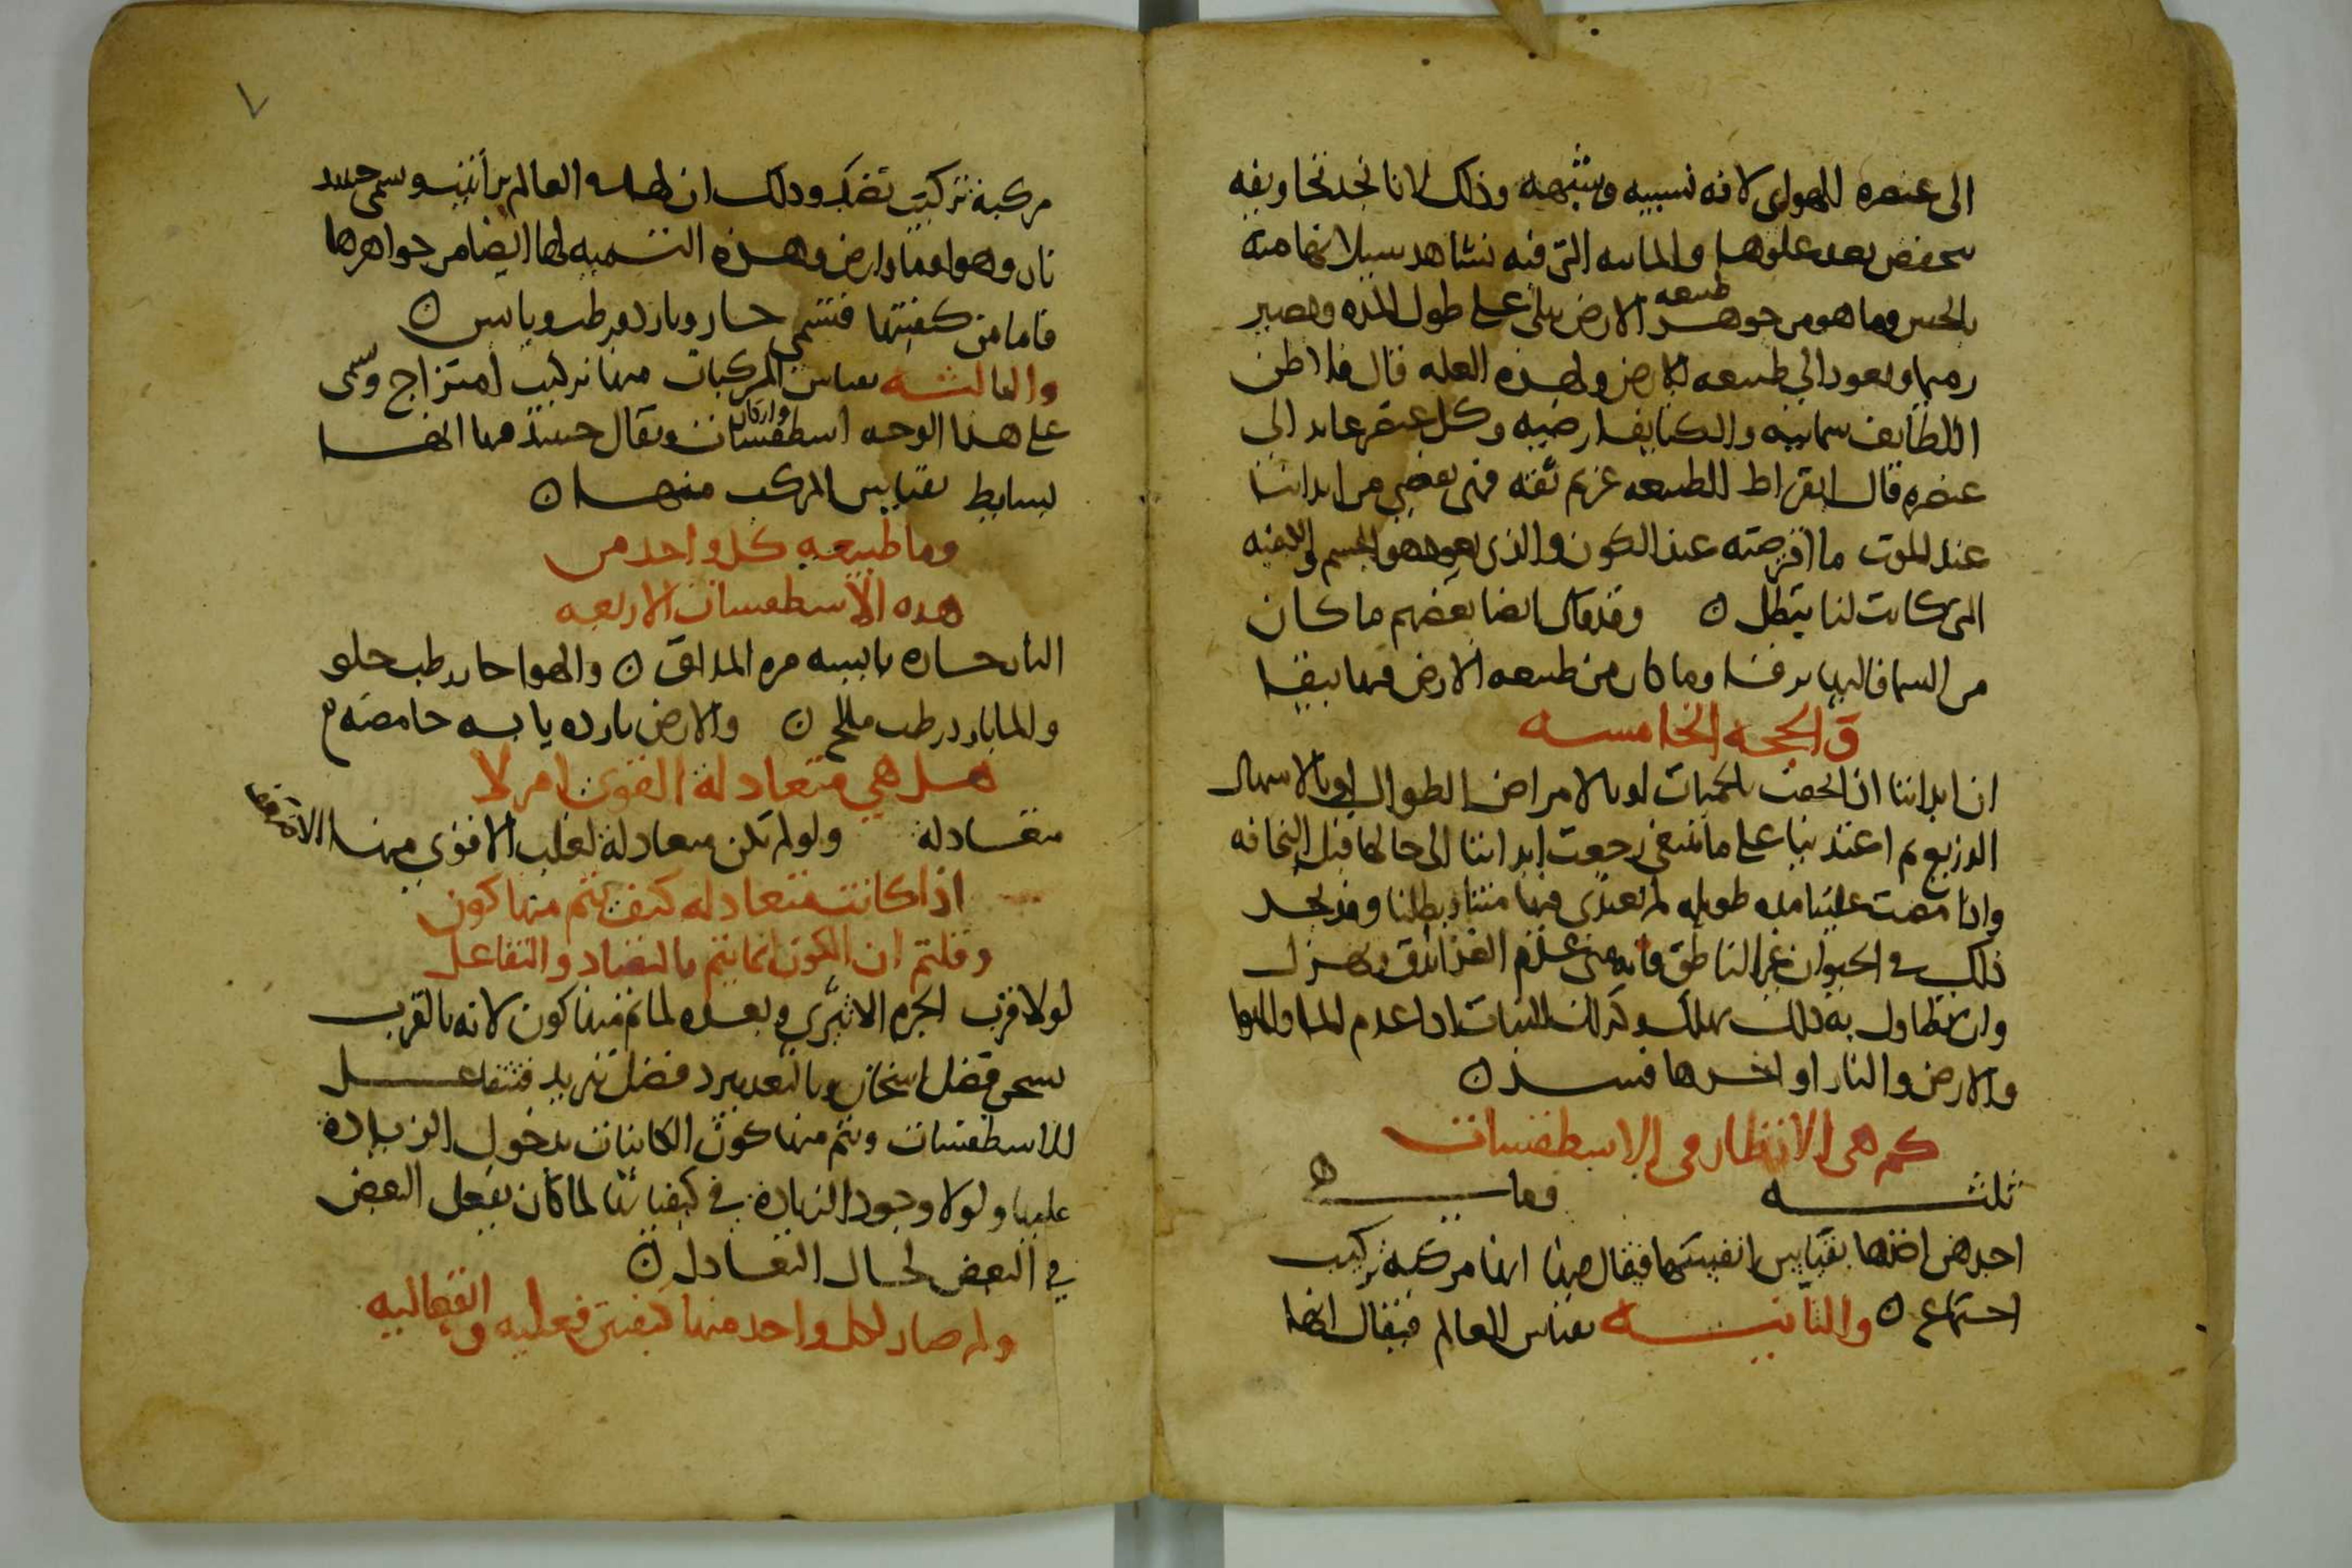 الى عنصره الهواى لانه نسيبه وشبهه وذلك لانا نجد تجاويفه
بعد علوها والماييه التى فيه نشاهد سيلانها منه
بالحس وما هو من جوهر طبيعه الارض يبلى على طول المده ويصير
رميما ويعود الى طبيعه الارض ولهذه العله قال فلاطن
اللطايف سماييه والكثايف ارضيه وكل عنصر عايد الى
عنصره قال ابقراط الطبيعه غريم ثقه فهى تقضي من ابداننا
عند الموت ما اقرضته عند الكون والذى يعود هو الجسم
التى كانت لنا يبطل ن وقد قال ايضا بعضهم ما كان
من السما فاليها يرقا وما كان من طبيعه الارض فيها يبقا
و الحجه الخامسه
ان ابداننا ان الحقت بالحميات او بالامراض الطوال او بالاسهال
الذريع ثم اغتذينا على ما ينبغي رجعت ابداننا الى حالها قبل النحافه
واذا مضت علينا مده طويله لم نغتذى فيها متنا وبطلنا وقد نجد
ذلك في الحيوان غير الناطق فانه متى عدم الغذا يدق ويهزل
وان تطاول به ذلك يهلك وكذلك النبات اذا عدم الما والهوا
والارض والنار او احدها فسد ن
كم هى الانظار فى الاسطقسات
ثلثه وماهى
احدهن اخذها بقياس انفسها فيقال فيها انها مركبه تركيب
اجتماع ن والثانيه بقياس العالم فيقال انها
٧
مركبة تركيب تضاد وذلك ان لهـا العالم يسمى حينيذ
نار وهوا وما وارض وهذه التسميه لها ايضا من جواهرها
فاما من كيفيتها فتسمى حار وبارد ورطب ويابس ن
والثالثه بقياس المركبات منها تركيب امتزاج وتسمى
على هذا الوجه اسطقسات واركان ويقال حينيذ فيها انها
بسايط بقياس المركب منها ن
وما طبيعه كل واحد من
هذه الاسطقسات الاربعه
النار حاره يابسه مره المذاق ن والهوا حار رطب حلو
والما بارد رطب مالح ن والارض بارده يابسه حامضه
هل هي متعادلة القوى ام لا
متعادلة ولو لم تكن متعادلة لغلب الاقوى منها الاضعف
اذا كانت متعادله كيف يتم منها كون
وقلتم ان الكون انما يتم بالتضاد والتفاعل
لولا قرب الجرم الاثيري وبعده لما تم منها كون لانه بالقرب
يسخن فضل اسخان وبالبعد يبرد فضل تبريد فتتفاعل
الاسطقسات ويتم منها كون الكاينات بدخول الزيادة
عليها ولولا وجود الزيادة في كيفياتها لما كان يفعل البعض
في البعض لحال التعادل ن
ولم صار لكل واحد منها كيفيتين فعليه و انفعاليه